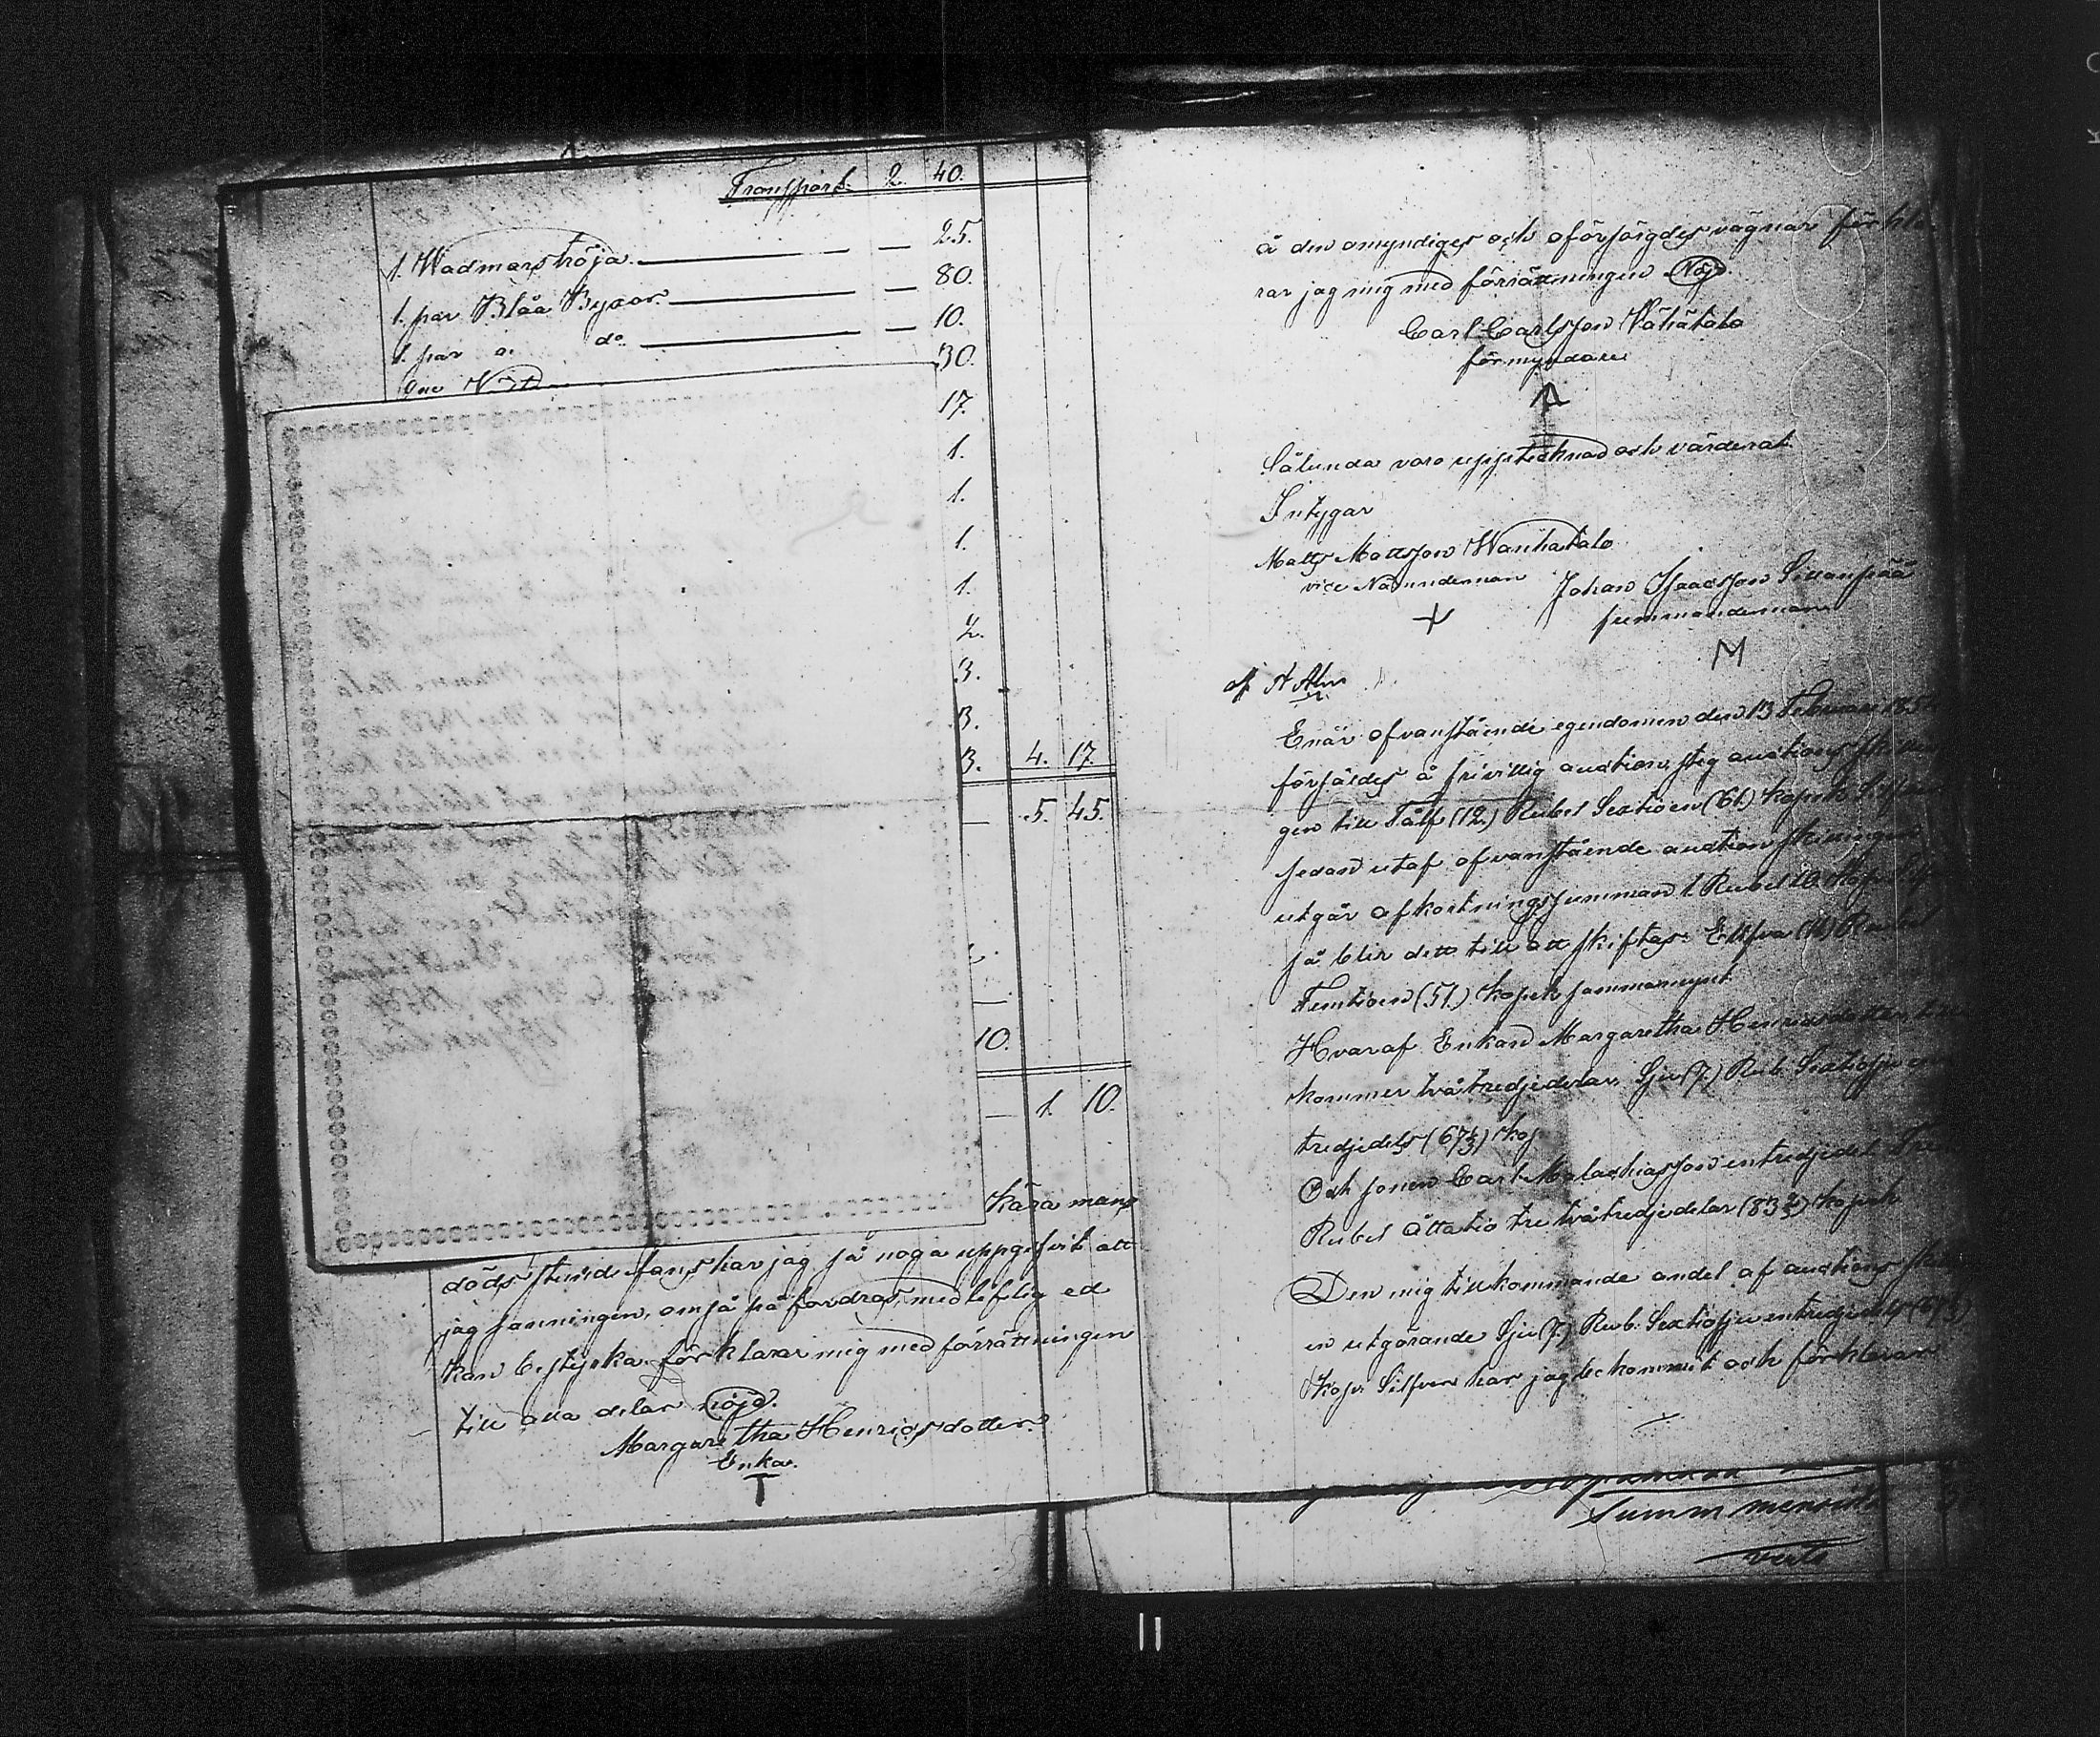 Transport. 2. 40.
1. Wadmarströja. — — 25.
1. par Blåa Byxor. — — 80.
1. par o. do — — 10.
30.
17.
1.
1.
1.
1.
2.
3.
3.
3. 4. 17.
— 5. 45.
—
10.
— 1. 10.
kära mans
döds stund fans, har jag så noga uppgifvit att
jag sanningen, om så på fordras, med liflig ed
kan bestyrka. förklarar mig med förrättningen
till alla delar nöjd.
Margaretha Henricsdotter.
Enka.
T
å den omyndiges och oförsörgdes vägnar förkla
rar jag mig med förrättningen Nöjd
Carl Carlsson Wähätalo
förmyndare
Sålunda vara uppteknad och värderat
Intygar
Matts Mattsson Wanhatalo
vice Nämndeman Johan Isaacsson Sillanpää
X
M
af A Alm
Enär ofvanstående egendomen den 13 Februari 185
försåldes å frivillig auction, steg auctions
gen till Tålf (12.) Rubel Sextioen (61.) kopek
sedan utaf ofvanstående auction skillingen
utgår afkortningssumman 1 Rubel 10 kopek
så blir dett till att skiftas: Ellfva (11) Rubel
Femtioen (51.) kopek sammamynt.
Hvaraf Enkan Margaretha Henricsdotter till
kommer tvåtredjedelar, Sju (7.) Rub. Sextiosju en
tredjedels (67⅓) kop.
Och sonen Carl Malachiasson entredjedel Tre
Rubel åttatio tre tvåtredjedelar (83⅔) kopek
Den mig tillkommande andel af auctions
en utgörande Sju (7.) Rub. Sextiosju entredjedels (67⅓)
kop. Silfver har jag bekommit och förklarar
Summ
verte
11